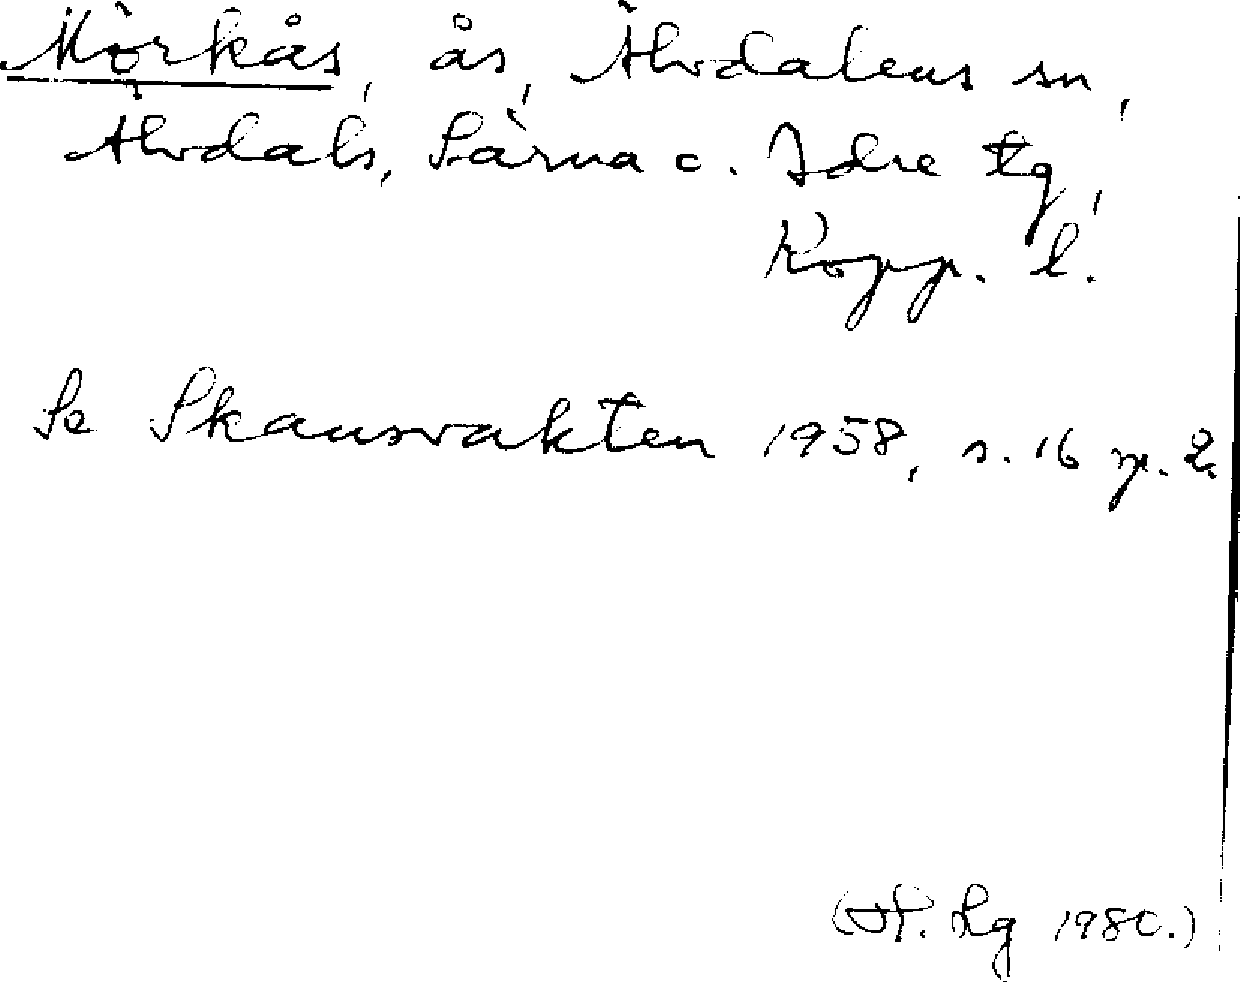 Mörkås, ås, Älvdalens sn,
Älvdals, Särna o. Idre tg,
Kopp. l.
Se Skansvakten 1958, s. 16 sp. 2.
Lg 1980.)